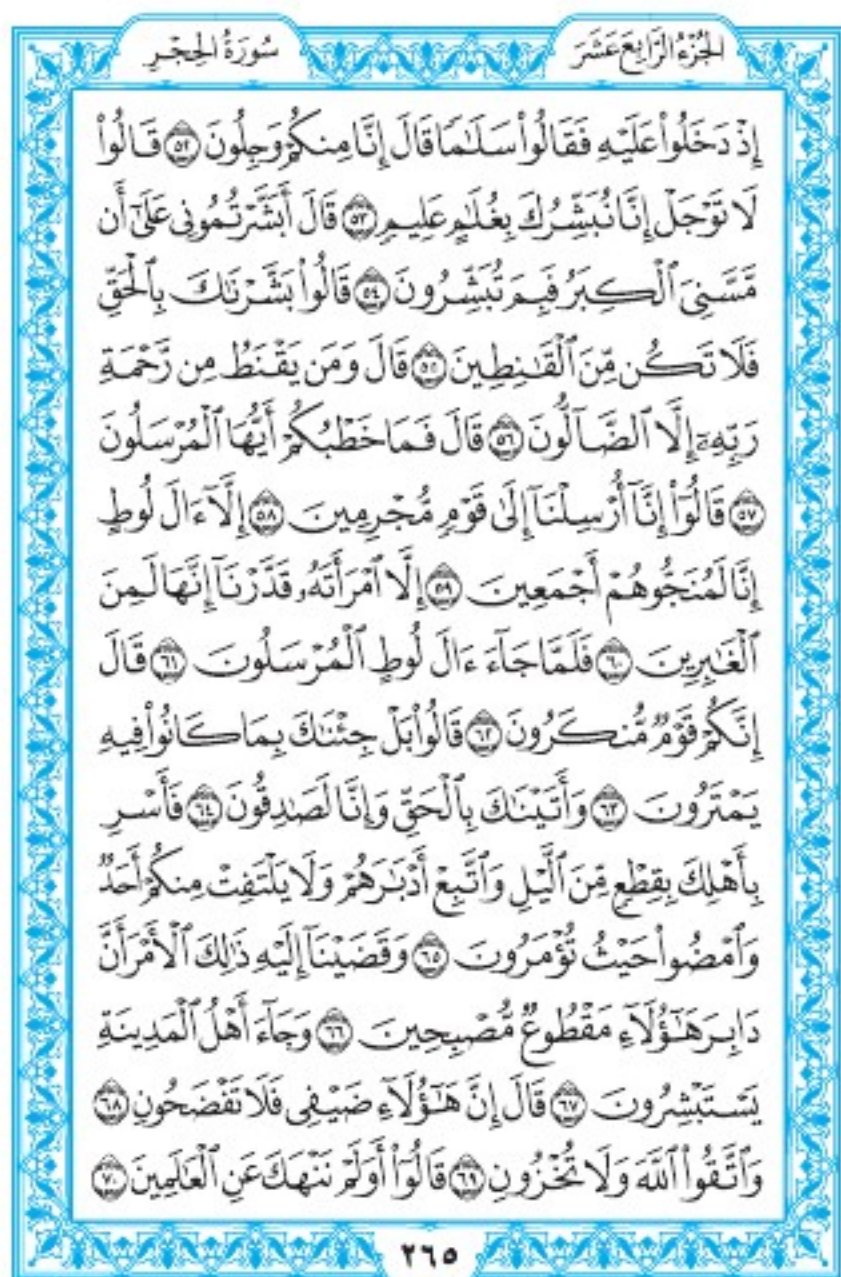 الجُزْءُ الرَّابِعَ عَشَرَ
سُورَةُ الحِجْرِ
إِذْ دَخَلُواْ عَلَيْهِ فَقَالُواْ سَلَٰمًا قَالَ إِنَّا مِنكُمْ وَجِلُونَ ٥٢ قَالُواْ
لَا تَوْجَلْ إِنَّا نُبَشِّرُكَ بِغُلَٰمٍ عَلِيمٍ ٥٣ قَالَ أَبَشَّرْتُمُونِى عَلَىٰٓ أَن
مَّسَّنِىَ ٱلْكِبَرُ فَبِمَ تُبَشِّرُونَ ٥٤ قَالُواْ بَشَّرْنَٰكَ بِٱلْحَقِّ
فَلَا تَكُن مِّنَ ٱلْقَٰنِطِينَ ٥٥ قَالَ وَمَن يَقْنَطُ مِن رَّحْمَةِ
رَبِّهِۦٓ إِلَّا ٱلضَّآلُّونَ ٥٦ قَالَ فَمَا خَطْبُكُمْ أَيُّهَا ٱلْمُرْسَلُونَ
٥٧ قَالُوٓاْ إِنَّآ أُرْسِلْنَآ إِلَىٰ قَوْمٍ مُّجْرِمِينَ ٥٨ إِلَّآ ءَالَ لُوطٍ
إِنَّا لَمُنَجُّوهُمْ أَجْمَعِينَ ٥٩ إِلَّا ٱمْرَأَتَهُۥ قَدَّرْنَآ إِنَّهَا لَمِنَ
ٱلْغَٰبِرِينَ ٦٠ فَلَمَّا جَآءَ ءَالَ لُوطٍ ٱلْمُرْسَلُونَ ٦١ قَالَ
إِنَّكُمْ قَوْمٌ مُّنكَرُونَ ٦٢ قَالُواْ بَلْ جِئْنَٰكَ بِمَا كَانُواْ فِيهِ
يَمْتَرُونَ ٦٣ وَأَتَيْنَٰكَ بِٱلْحَقِّ وَإِنَّا لَصَٰدِقُونَ ٦٤ فَأَسْرِ
بِأَهْلِكَ بِقِطْعٍ مِّنَ ٱلَّيْلِ وَٱتَّبِعْ أَدْبَٰرَهُمْ وَلَا يَلْتَفِتْ مِنكُمْ أَحَدٌ
وَٱمْضُواْ حَيْثُ تُؤْمَرُونَ ٦٥ وَقَضَيْنَآ إِلَيْهِ ذَٰلِكَ ٱلْأَمْرَ أَنَّ
دَابِرَ هَٰٓؤُلَآءِ مَقْطُوعٌ مُّصْبِحِينَ ٦٦ وَجَآءَ أَهْلُ ٱلْمَدِينَةِ
يَسْتَبْشِرُونَ ٦٧ قَالَ إِنَّ هَٰٓؤُلَآءِ ضَيْفِى فَلَا تَفْضَحُونِ ٦٨
وَٱتَّقُواْ ٱللَّهَ وَلَا تُخْزُونِ ٦٩ قَالُوٓاْ أَوَلَمْ نَنْهَكَ عَنِ ٱلْعَٰلَمِينَ ٧٠
٢٦٥